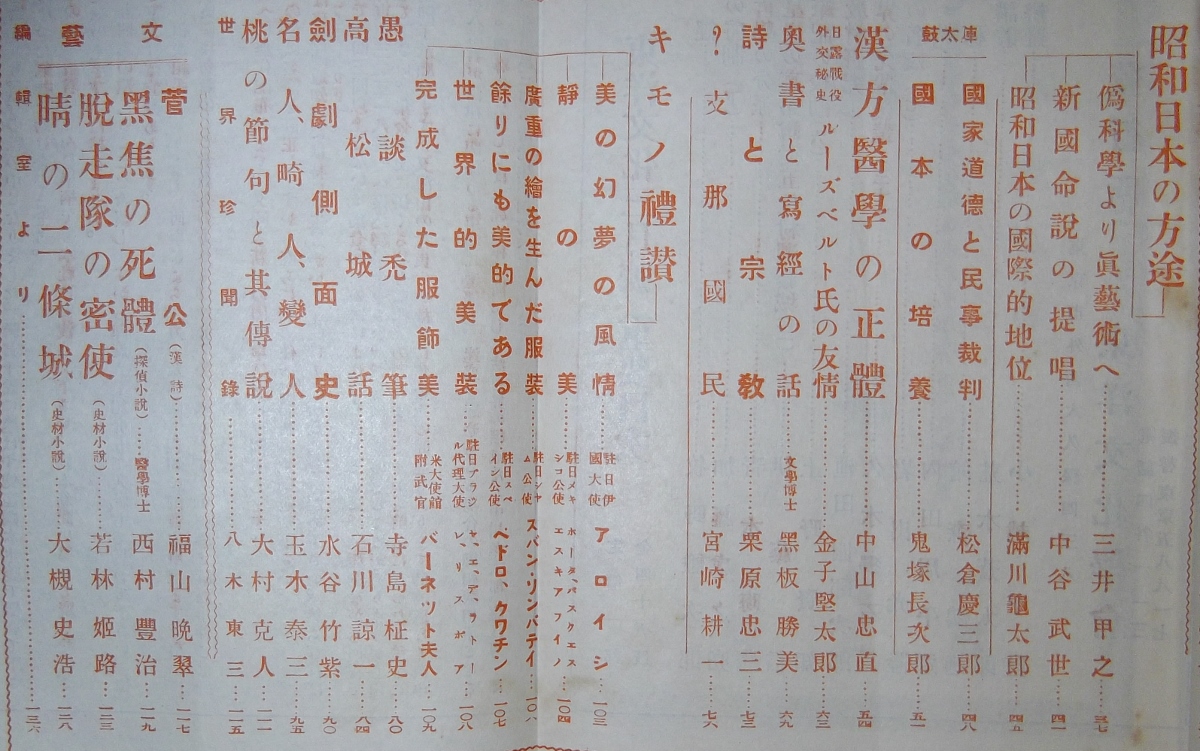 昭和日本の方途
僞科學より眞藝術へ 三井甲之 三七
新國命說の提唱 中谷武世 四一
昭和日本の國際的地位 滿川龜太郎 四五
庫太鼓
國家道德と民事裁判 松倉慶三郎 四八
國本の培養 鬼塚長次郎 五一
漢方醫學の正體 中山忠直 五四
日露戰役外交秘史 ルーズベルト氏の友情 金子堅太郎 六三
奧書と寫經の話 文學博士 黑板勝美 六九
詩と宗敎 栗原忠三 七三
?支那國民 宮崎耕一 七六
キモノ禮讃
美の幻夢の風情 駐日伊國大使 アロイシ 一〇三
靜の美 駐日メキシコ公使 ホータ、パスクエス エスキアフイノ 一〇四
廣重の繪を生んだ服裝 駐日シヤム公使 スバン・リンパティ 一〇六
餘りにも美的である 駐日スペイン公使 ペドロ、クワチン 一〇七
世界的美裝 駐日ブラジル代理大使 ヤ、エ、デ、ラトー レ、リスボア 一〇八
完成した服飾美 米大使館附武官 バーネツト夫人 一〇九
愚談禿筆 寺島柾史 八〇
高松城話 石川諒一 八四
劍劇側面史 水谷竹紫 九〇
名人、畸人、變人 玉木泰三 九五
桃の節句と其傳說 大村克人 一一一
世界珍聞錄 八木東三 一一五
文藝
菅公 (漢詩) 福山晩翠 一一七
黑焦の死體 (探偵小說) 醫學博士 西村豐治 一一九
脫走隊の密使 (史材小說) 若林姬路 一二三
晴の二條城 (史材小說) 大槻史浩 一二八
編輯室より 一三六